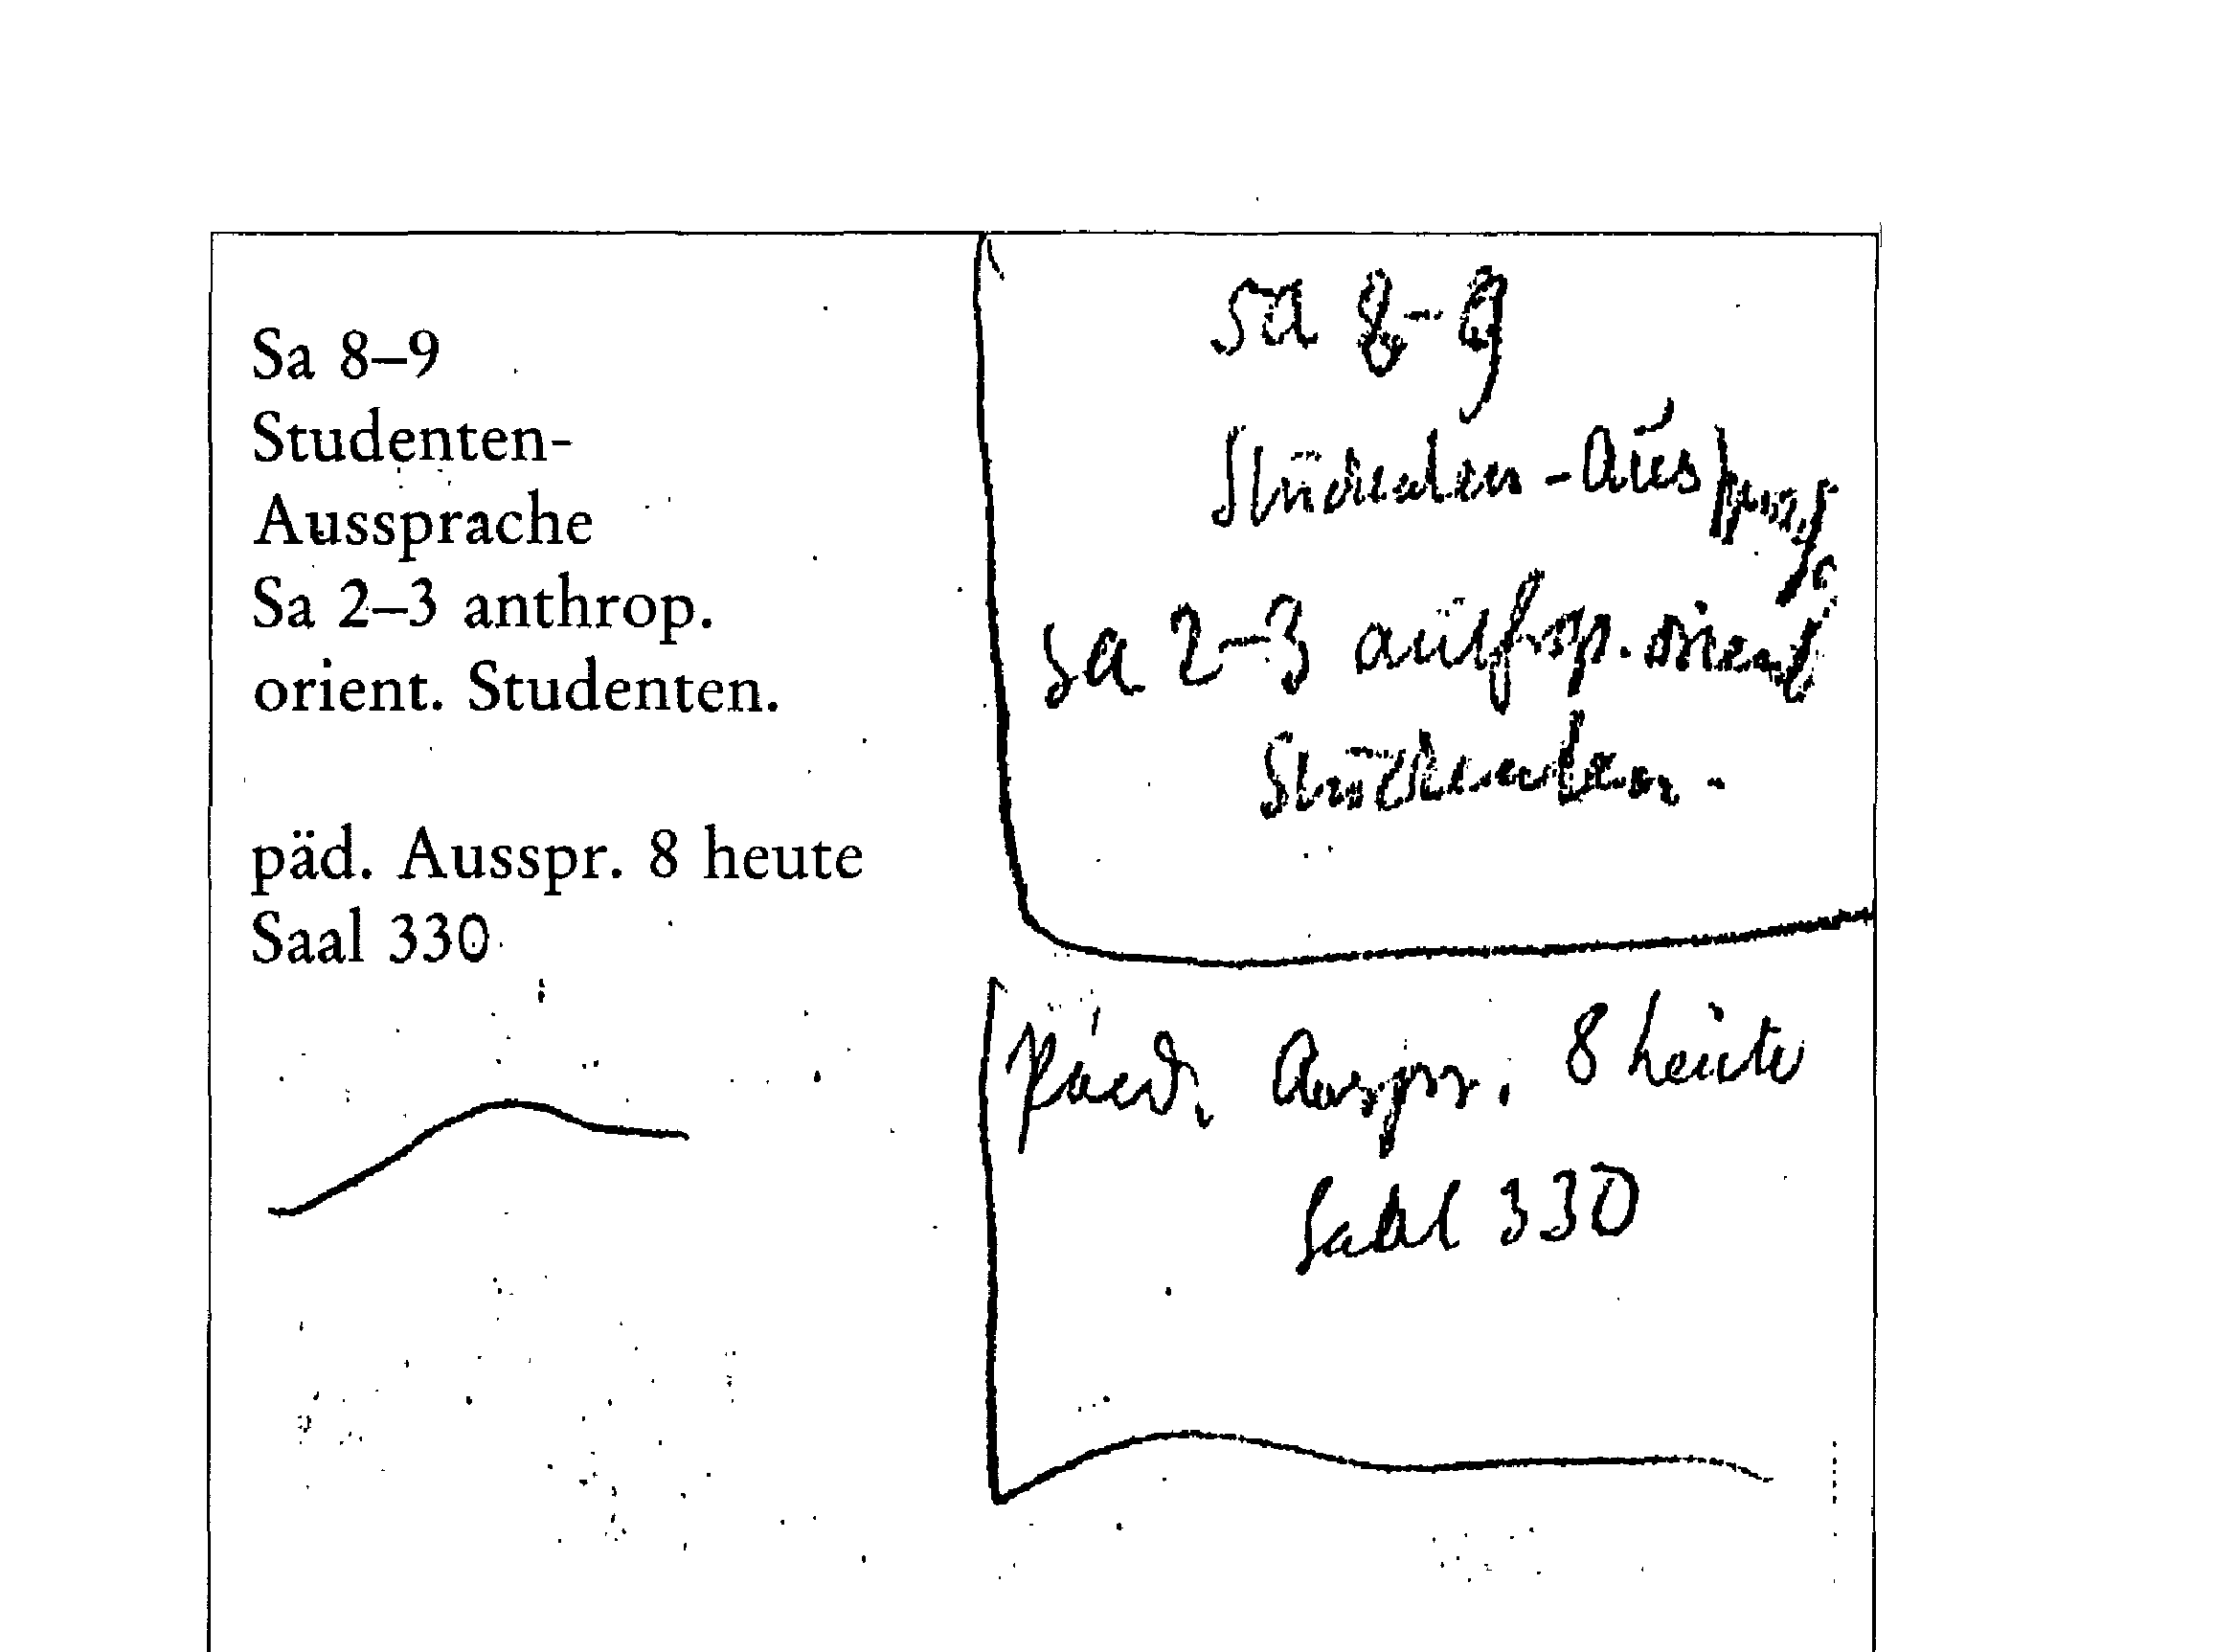 Sa 8–9
Studenten-
Aussprache
Sa 2–3 anthrop.
orient. Studenten.
päd. Ausspr. 8 heute
Saal 330
Sa 8-9
Studenten-Aussprache
Sa 2-3 anthrop. orient
Studenten.
Päd. Ausspr. 8 heute
Saal 330